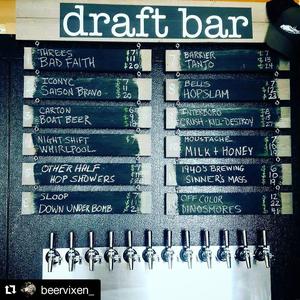 draft bar
THREES
BAD FAITH
$11
ICONYC
SAISON BRAVO
11
20
CARTON
BOAT BEER
NIGHT SHIFT
WHIRLPOOL
OTHER HALF
HOP SHOWERS
SLOOP
DOWN UNDER BOMB
BARRIER
TANJO
BELLS
HOPSLAM
INTERBORO
CRUSH-KILL-DESTROY
MOUSTACHE
MILK + HONEY
1940'S BREWING
SINNERS MASS
OFF COLOR
DINOSMORES
beervixen_